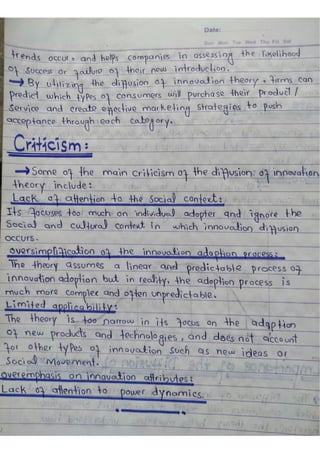 Date:
Sun Mon Tue Wed Thu Fri Sat
trends occur, and helps companies in assessing the likelihood
of success or failure of their new introduction.
→ By utilizing the diffusion of innovation theory, firms can
predict which types of consumers will purchase their product/
Service and create effective marketing strategies to push
acceptance through each category.
Criticism:
→ Some of the main criticism of the diffusion: of innovation
theory include:
Lack of attention to the Social context:
Its focuses too much on individual adopter and ignore the
Social and cultural context in which innovation diffusion
occurs.
oversimplification of the innovation adoption process:
The theory assumes a linear and predictable process of
innovation adoption but in reality, the adoption process is
much more complex and often unpredictable.
Limited applicability:
The theory is too narrow in its focus on the adoption
of new products and technologies, and does not account
for other types of innovation such as new ideas or
Social Movement.
overemphasis on innovation attributes:
Lack of attention to power dynamics.